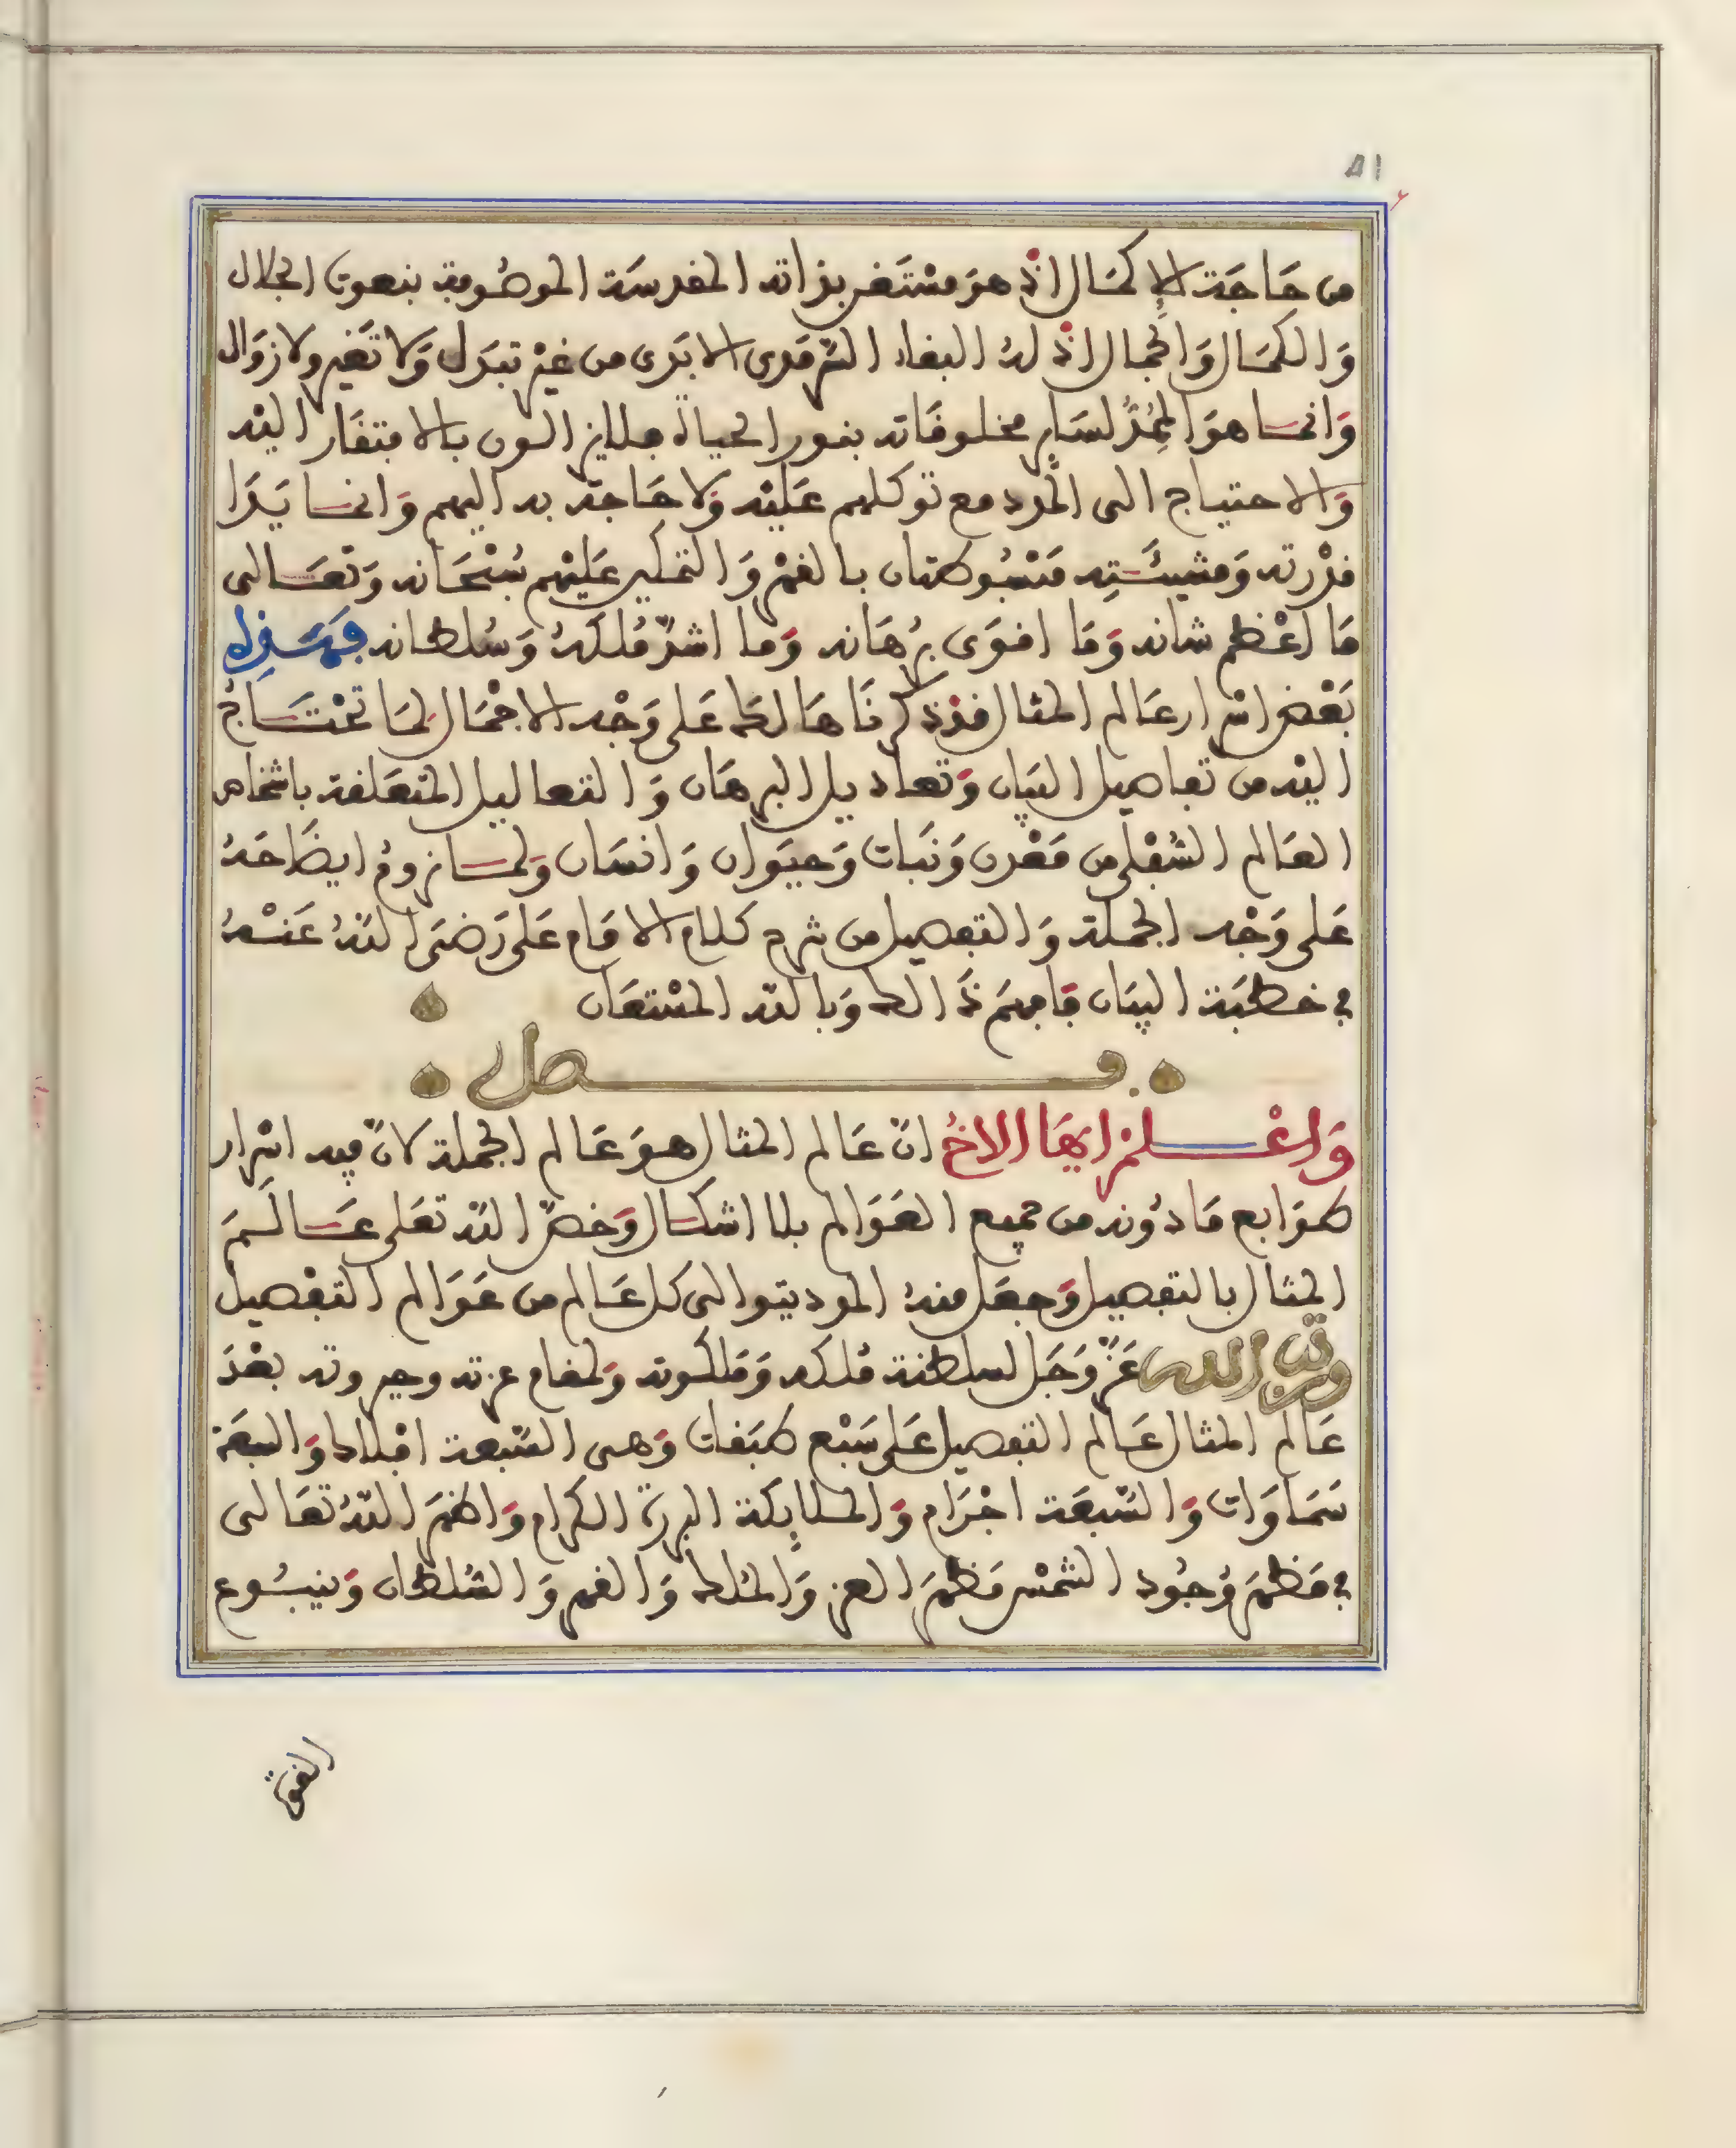 ٥١
من حَاجَة الإكمَال إذ هوَ مسْتَغن بذاته المقدسَة الموصُوفة بنعوت الجلال
وَالكمَال وَالجمال إذ لهُ البقاء السّرمَدي الابَدي من غيْر تبدَل وَلا تَغير ولا زوَال
وَانما هوَ المُمِدُّ لسَاير مخلوقَاته بنور الحياة جلايز السون بالافتقار اليْه
وَالاحتياج الى المدد مع توكلهم عَليْه وَلا حَاجة به اليهم وَانما يَدَا
قدْرته وَمشيئَتِه مَبْسُوطتان بالقهْر وَالتمكين عَليْهم سُبْحَانه وَتعَالى
مَا اعْظم شانه وَمَا اقوَى برْهَانه وَما اشدّ مُلكَهُ وَسُلطانه فهَذه
بَعْض اسْرار عَالم المثال قدْ ذكرنَاهَا لك عَلى وَجْه الاجْمَال لمَا تحْتَاجُ
اليْه من تفاصيل البيَان وَتعاديل البرهَان وَالتعاليل المتعَلقة باشخاص
العَالم السُفْلى من مَعْدن وَنَبات وَحيَوان وَانسَان وَلما نروم ايضَاحَهُ
عَلى وَجْه الجملة وَالتفصيل من شرح كلام الامَام عَلى رَضىَ اللهُ عَنْهُ
في خطبَة البيَان فَافهَم ذَالك وَبالله المسْتعَان
فصل
وَاعْلمْ ايهَا الاخُ انّ عَالم المثال هوَ عَالم الجملة لانّ فيه اسْرار
طوَابع مَا دُونه من جميع العَوَالم بلا اشكال وَخصّ الله تعَلى عَالَمَ
المثال بالتفصيل وَجعَل منهُ المودبتوا الى كل عَالم من عَوَالم التفْصيل
ورتب الله عَزّ وَجَل لسلطنة مُلكه وَمَلكوته وَلمقام عزته وجبروته بعْدَ
عَالم المثال عَالم التفصيل عَلى سَبْع طبَقات وَهى السّبعة افْلاك وَالسبعَة
سَمَاوَات وَالسّبعَة اجْرَام وَالملايكة البررة الكرام وَاظهَرَ اللهُ تعَالى
في مَظهَر وُجُود الشمْس مَظهَرَ العز وَالمُلك وَالقهر وَالسُلطان وَينبُوع
القوة